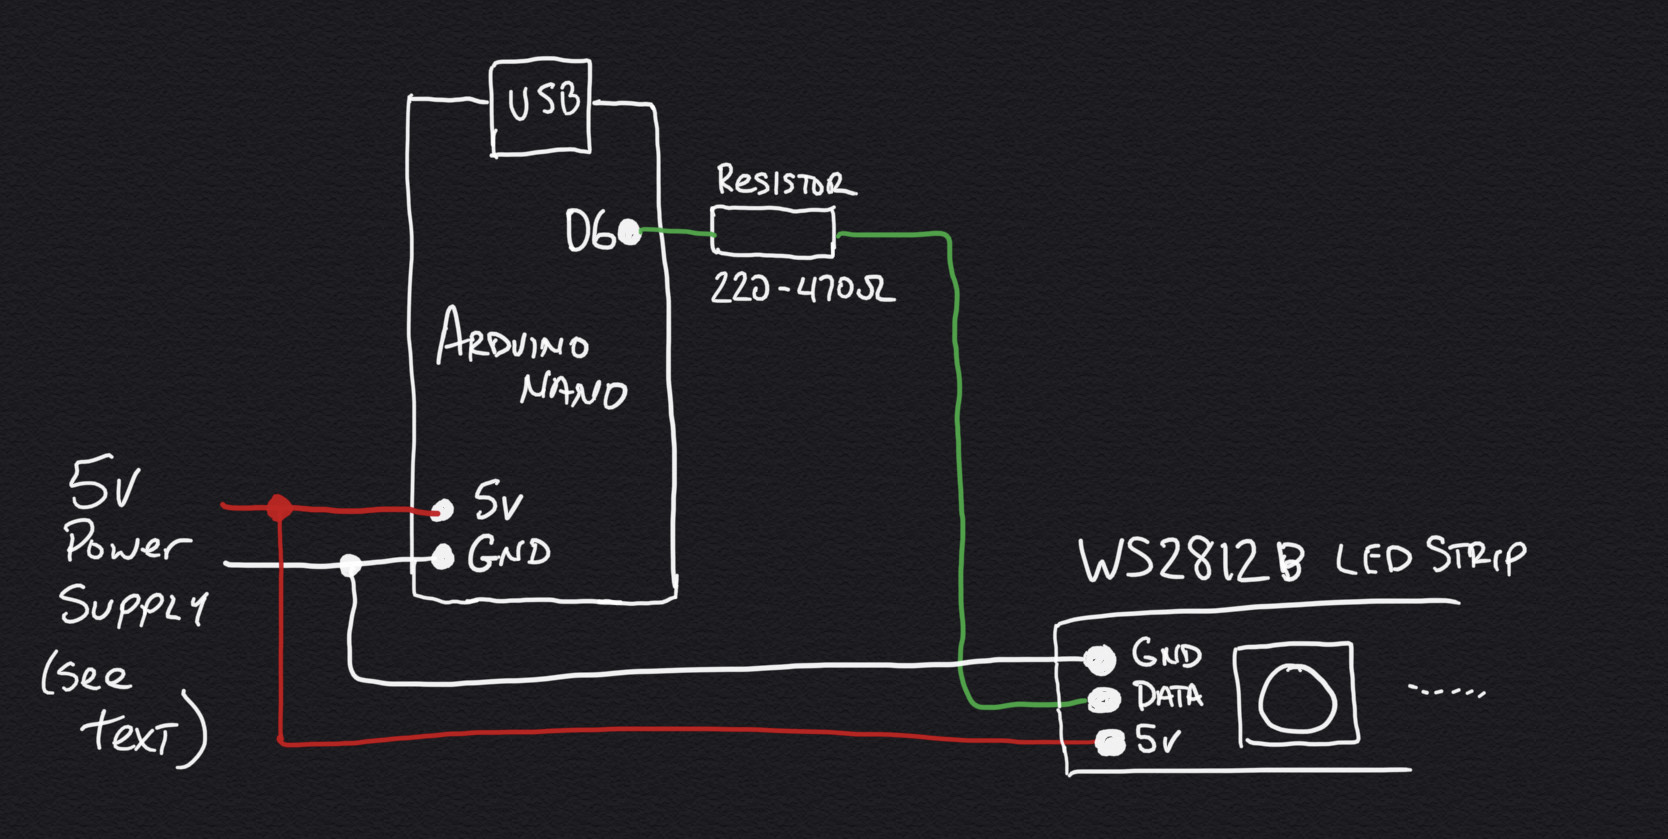 USB
RESISTOR
D6
220-470Ω
ARDUINO
NANO
5V
POWER
SUPPLY
(see
text)
5V
GND
WS2812B LED STRIP
GND
DATA
5V